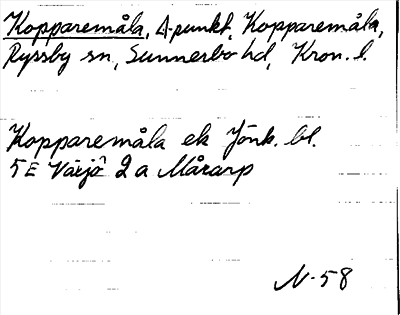 Kopparemåla, Δ-punkt, Kopparemåla,
Ryssby sn, Sunnerbo hd, Kron. l.
Kopparemåla ek Jönk. bl.
5E Växjö 2a Mårarp
N-58